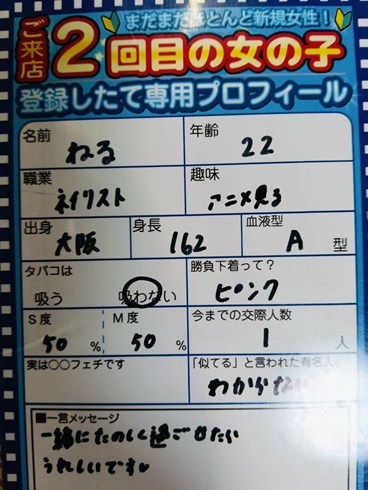 ご来店
まだまだほとんど新規女性!
2回目の女の子
登録したて専用プロフィール
名前
ねる
年齢
22
職業
ネイリスト
趣味
アニメ見る
出身
大阪
身長
162
血液型
A型
タバコは
吸う 吸わない
勝負下着って?
ピンク
S度
50%
M度
50%
今までの交際人数
1人
実は○○フェチです
「似てる」と言われた有名人
わからない
■一言メッセージ
一緒にたのしく過ごせたら
うれしいです